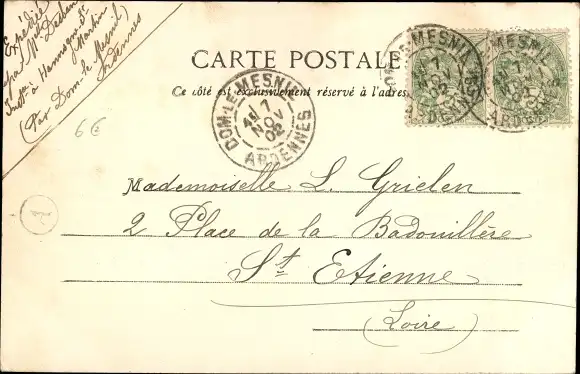 Expédiée
par Mel
Instce à Hannogne St
Martin
(Par Dom-le-Mesnil)
Ardennes
CARTE POSTALE
Ce côté est exclusivement réservé à l'adres
DOM-LE-MESNIL
7
NOV
ARDENNES
DOM-LE-MESNIL
7
NOV
ARDENNES
MESNIL
7
ARDENNES
6€
1
Mademoiselle L. Grielen
2 Place de la Badouillère
St Etienne
(Loire)